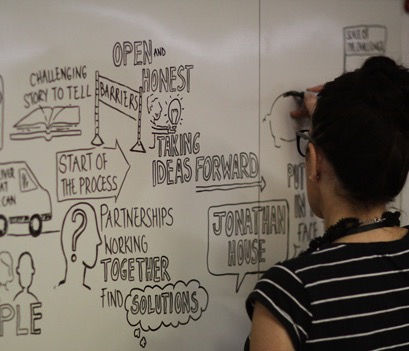 OPEN AND
HONEST
CHALLENGING
STORY TO TELL
BARRIERS
TAKING
IDEAS FORWARD
START OF
THE PROCESS
CAN
PARTNERSHIPS
WORKING
TOGETHER
FIND SOLUTIONS
JONATHAN
HOUSE
PUT
IN
FACE
PLE
SCALE OF
THE CHALLENGE